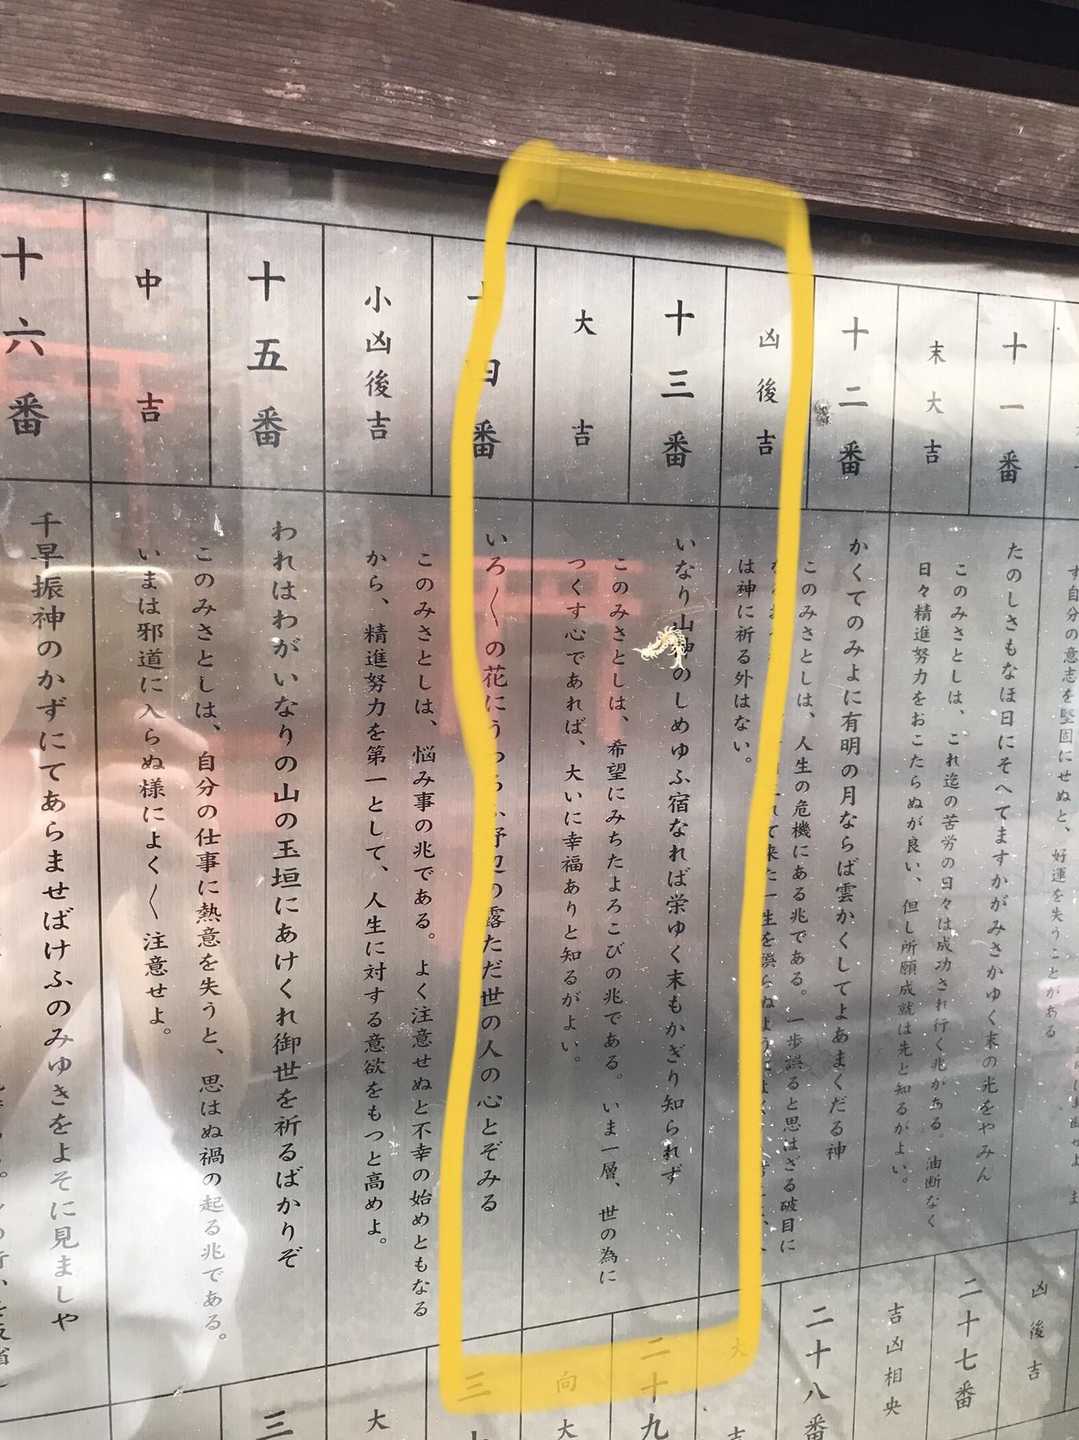 す自分の意志を堅固にせぬと、好運を失うことがある
十一番
末大吉
たのしさもなほ日にそへてますかがみさかゆく末の光をやみん
このみさとしは、これ迄の苦労の日々は成功され行く兆がある。油断なく
日々精進努力をおこたらぬが良い、但し所願成就は先と知るがよい。
十二番
凶後吉
かくてのみよに有明の月ならば雲かくしてよあまくだる神
このみさとしは、人生の危機にある兆である。一歩誤ると思はざる破目に
て来た一生を誤らぬよう
は神に祈る外はない。
十三番
大吉
いなり山神のしめゆふ宿なれば栄ゆく末もかぎり知られず
このみさとしは、希望にみちたよろこびの兆である。いま一層、世の為に
つくす心であれば、大いに幸福ありと知るがよい。
十四番
小凶後吉
いろ〱の花にうつろふ野辺の露ただ世の人の心とぞみる
このみさとしは、悩み事の兆である。よく注意せぬと不幸の始めともなる
から、精進努力を第一として、人生に対する意欲をもつと高めよ。
十五番
中吉
われはわがいなりの山の玉垣にあけくれ御世を祈るばかりぞ
このみさとしは、自分の仕事に熱意を失うと、思はぬ禍の起る兆である。
いまは邪道に入らぬ様によく〱注意せよ。
十六番
千早振神のかずにてあらませばけふのみゆきをよそに見ましや
凶後吉
二十七番
吉凶相央
二十八番
大吉
二十九番
向大
三十
大
三